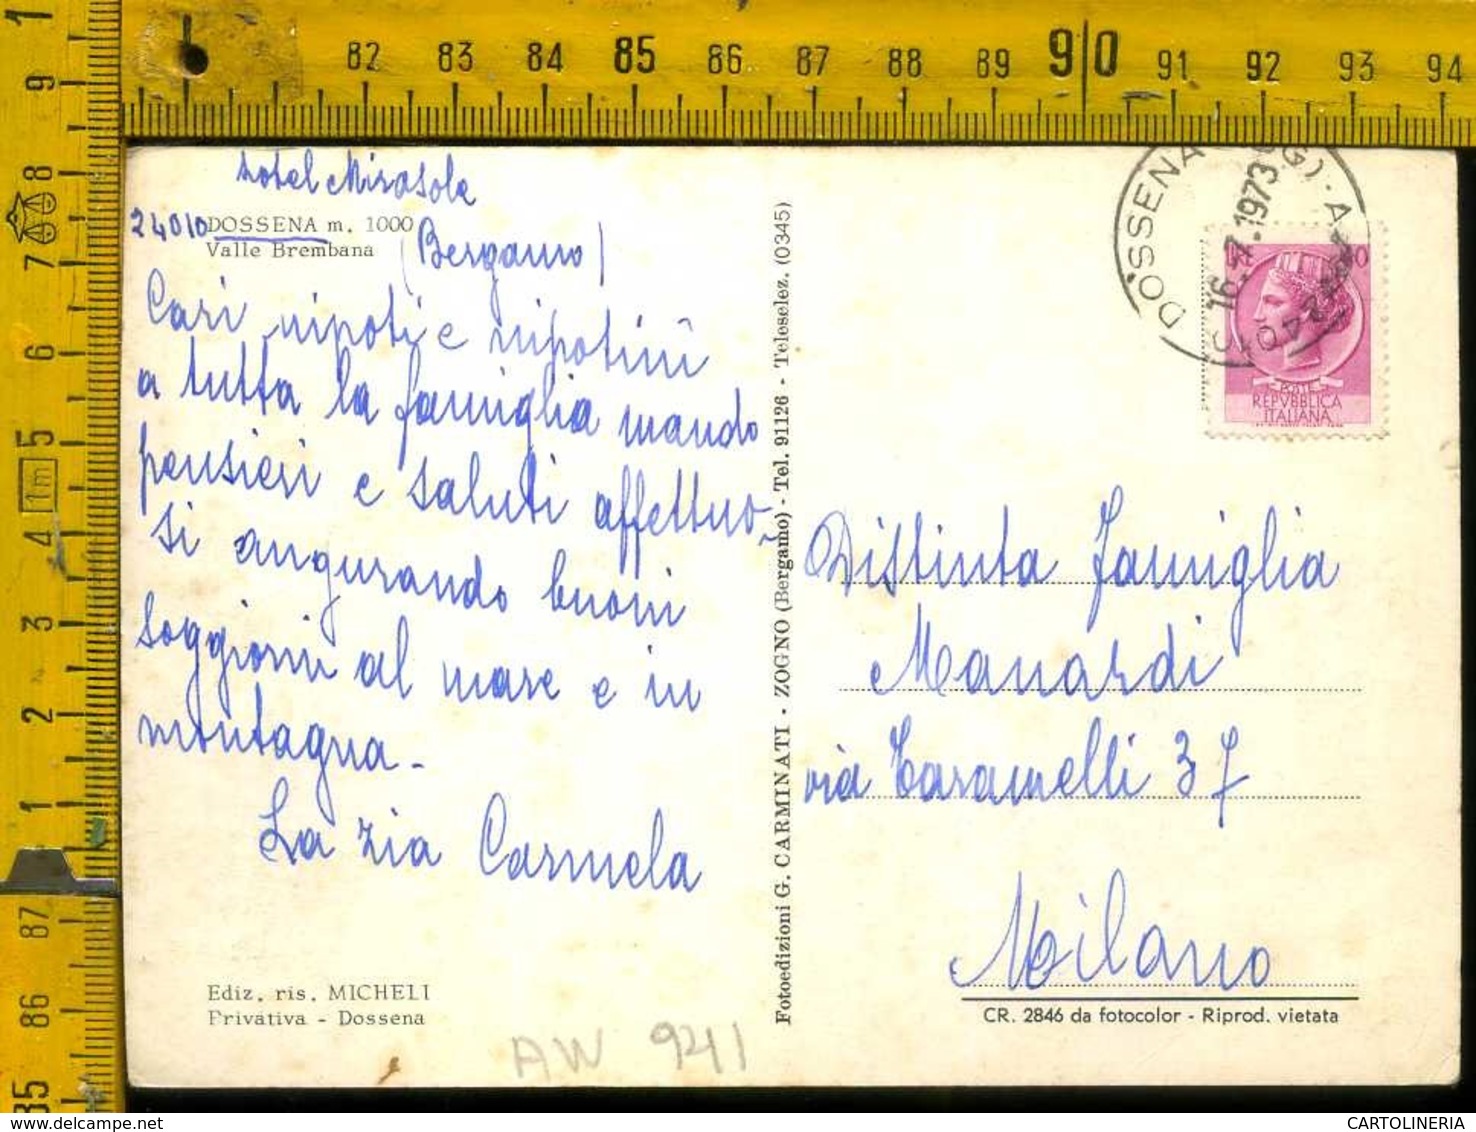 82 83 84 85 86 87 88 89 90 91 92 93 94
1
9
8
7
6
5
1m
4
3
2
1
87
86
85
hotel Mirasole
24010 DOSSENA m. 1000
Valle Brembana (Bergamo)
Cari nipoti e nipotini
a tutta la famiglia mando
pensieri e saluti affettuo-
si angurando buoni
soggiorni al mare e in
montagna-
La zia Carmela
Ediz. ris. MICHELI
Privativa - Dossena
AW 941
Fotoedizioni G. CARMINATI - ZOGNO (Bergamo) - Tel. 91126 - Teleselez. (0345)
DOSSENA (BG)
16.7.1973
REPVBBLICA
ITALIANA
Distinta famiglia
Manardi
via Taramelli 37
Milano
CR. 2846 da fotocolor - Riprod. vietata
CARTOLINERIA